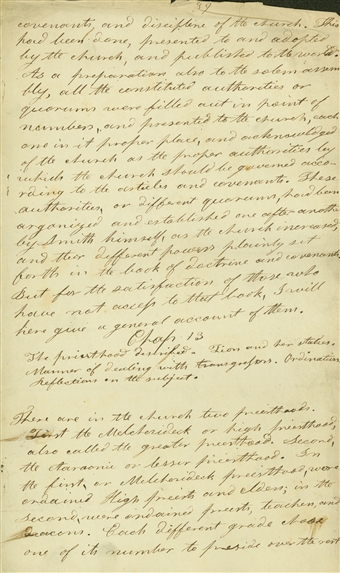 59
covenants, and discipline of the church. This
had been done, presented to and adopted
by the church, and published to the world.
As a preparation also to the solem assem
bly, all the constituted authorities or
quorums were filled out in point of
numbers, and presented to the church, each
one in it proper place, and acknowledged
of the church as the proper authorities by
which the church should be governed acco
rding to the articles and covenant. These
authorities, or different quorums, had been
arganized and established one after another
by Smith himself, as the church increased,
and their different powers plainly set
forth in the book of doctrine and covenants.
But for the satisfaction of those who
have not access to that book, I will
here give a general account of them.
Chap. 13
The priesthood described. Zion and her stakes.
Manner of dealing with transgressors. Ordination
Reflections on the subject.
There are in the church two priesthoods.
First the Melchisideck or high priesthood,
also called the greater priesthood. Second,
the Aaraonic or lesser priesthood. In
the first, or Melchisideck priesthood, were
ordained High priests and elders; in the
second, were ordained priests, teachers, and
deacons. Each different grade chose
one of its number to preside over the rest